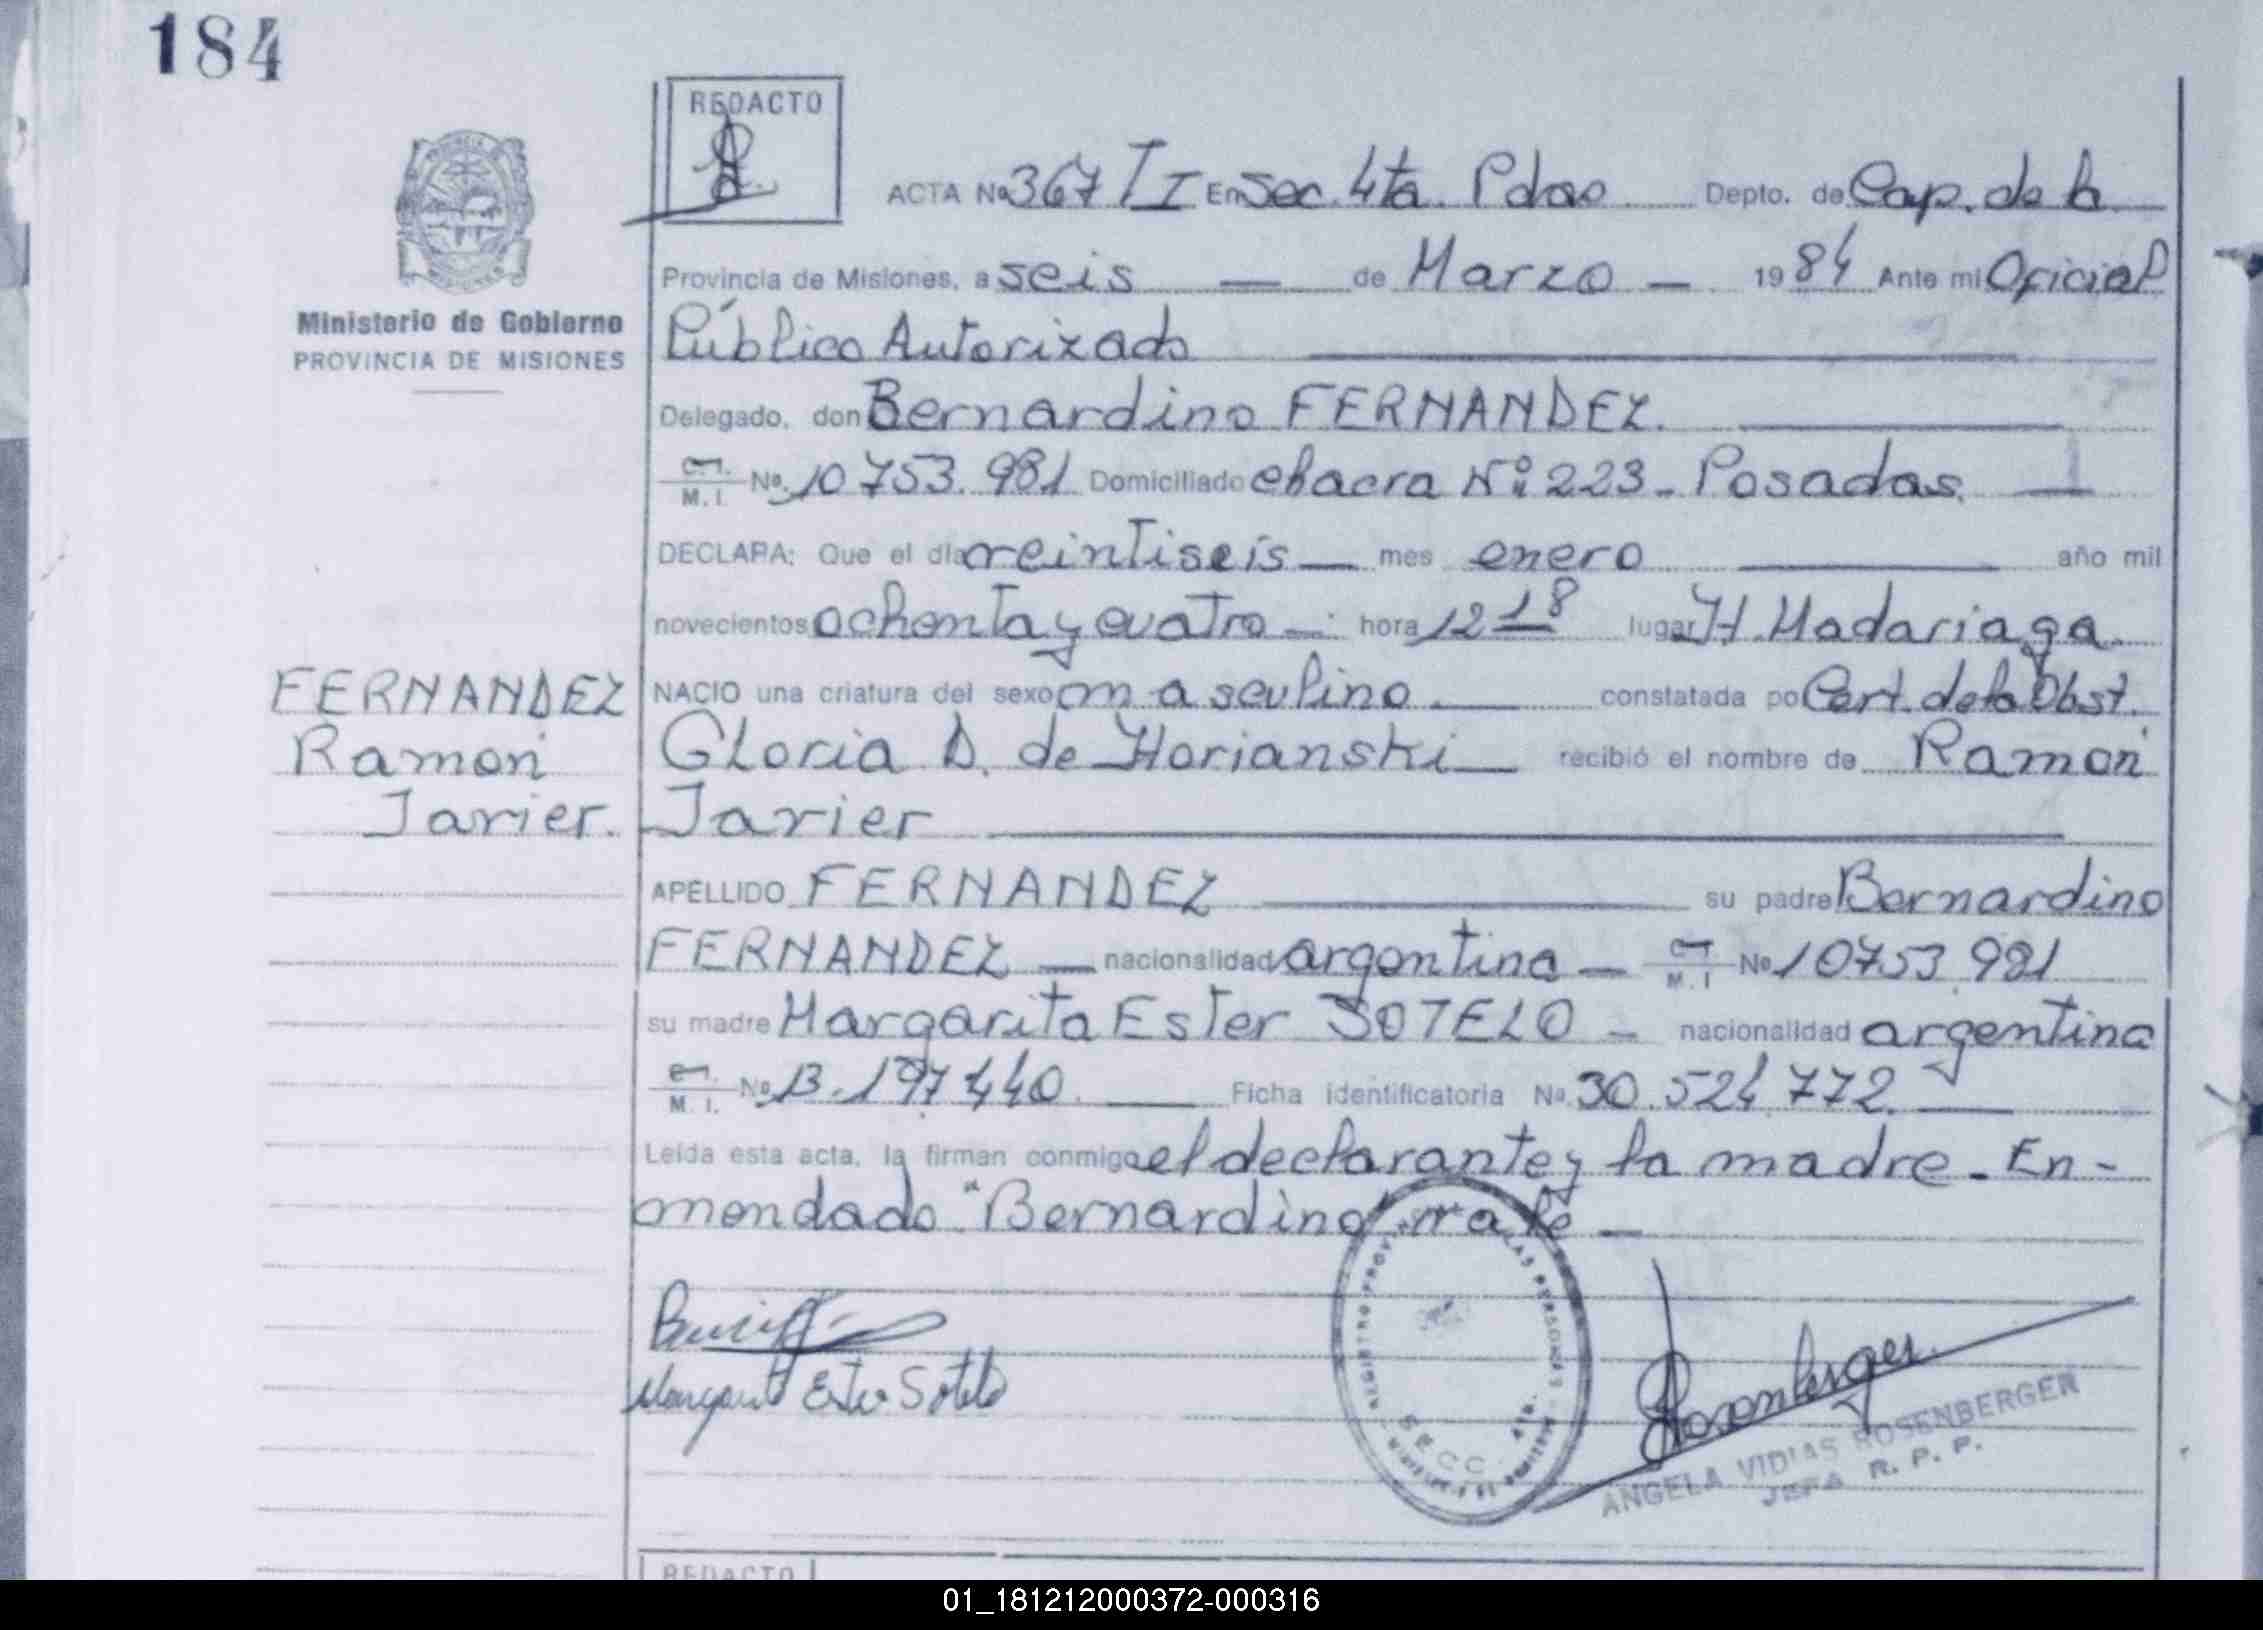 184
REDACTO
ACTA Nº 367 T I En Sec. 4ta. Pdas Depto. de Cap. de la
Provincia de Misiones, a seis — de Marzo — 1984 Ante mi Oficial
Ministerio de Gobierno
PROVINCIA DE MISIONES
Público Autorizado
Delegado, don Bernardino FERNANDEZ.
M. I. Nº 10 753.981 Domiciliado chacra Nº 223 - Posadas. —
DECLARA: Que el día veintiseis — mes enero — año mil
novecientos ochenta y cuatro — hora 12 18 lugar H. Madariaga.
FERNANDEZ
Ramón
Javier.
NACIO una criatura del sexo masculino. — constatada po Cert. de la Obst.
Gloria D. de Horianski — recibió el nombre de Ramón
Javier —
APELLIDO FERNANDEZ — su padre Bernardino
FERNANDEZ — nacionalidad argentina — M. I Nº 10753.981
su madre Margarita Ester SOTELO — nacionalidad argentina
M. I. Nº 13.197.440. — Ficha identificatoria Nº 30.524.772. —
Leída esta acta, la firman conmigo el declarante y la madre - En-
mendado "Bernardino" vale —
Margarit Ester Sotelo
REGISTRO PROV. LAS PERSONAS
SECC. 4TA.
Rosenberger
ANGELA VIDIAS ROSENBERGER
JEFA R. P. P.
REDACTO
01_181212000372-000316